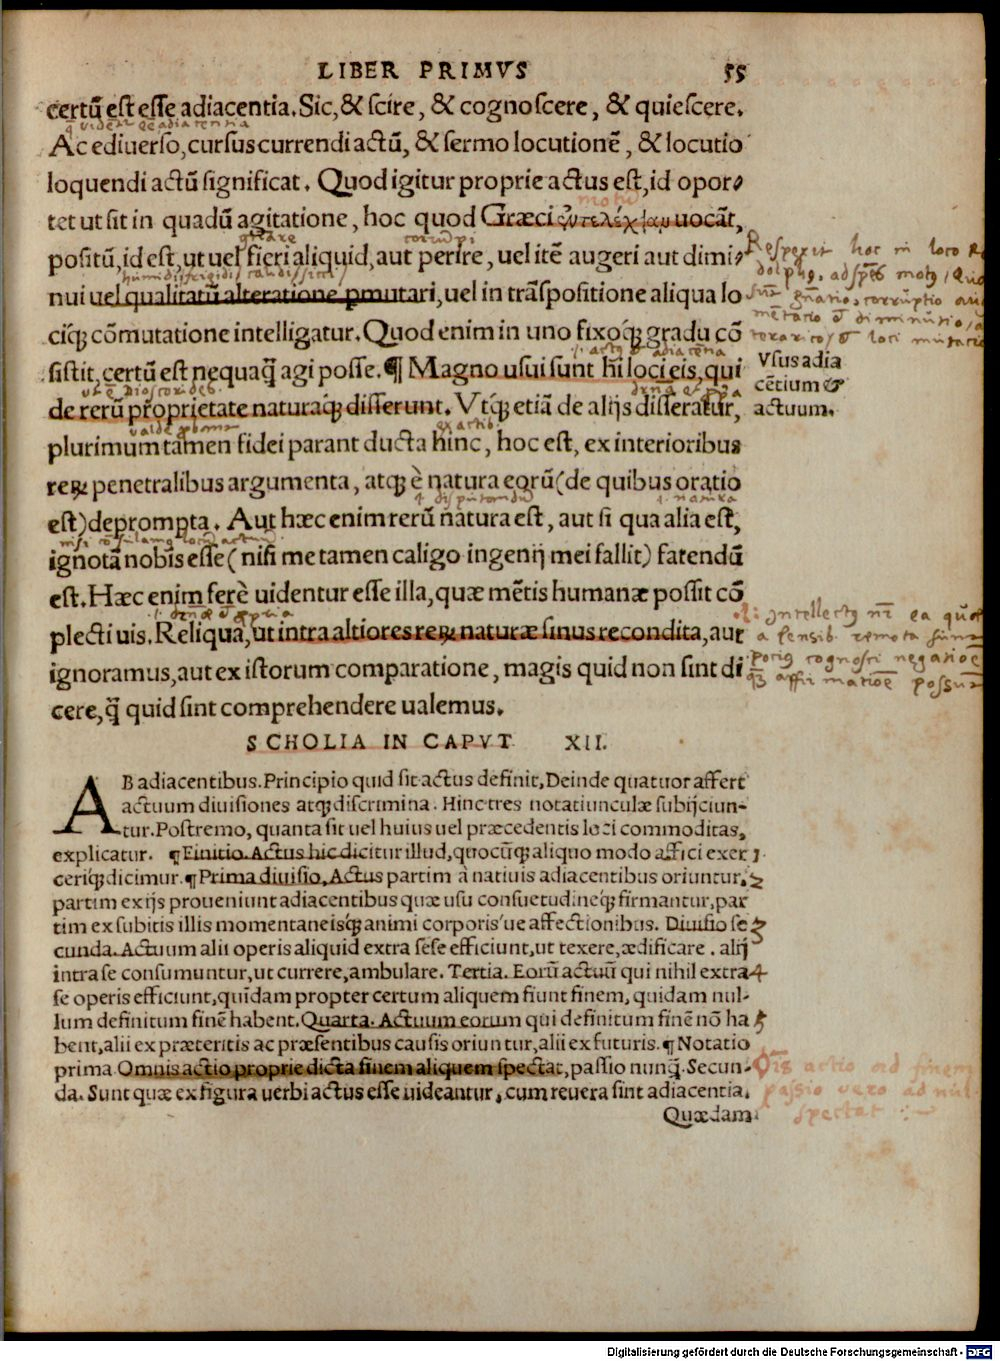 LIBER PRIMVS 55
certũ est esse adiacentia. Sic, & scire, & cognoscere, & quiescere.
Ac ediuerso, cursus currendi actũ, & sermo locutionẽ, & locutio
loquendi actũ significat. Quod igitur proprie actus est, id opor-
motũ
tet ut sit in quadũ agitatione, hoc quod Græci ἐντελέχειαν uocãt,
positũ, id est, ut uel fieri aliquid, aut perire, uel itẽ augeri aut dimi-
nui uel qualitatũ alteratione pmutari, uel in trãspositione aliqua lo
ciq; cõmutatione intelligatur. Quod enim in uno fixoq; gradu cõ
sistit, certũ est nequaq̃ agi posse. ¶ Magno usui sunt hi loci eis, qui
Vsus adia
cẽtium &
actuum.
de rerũ proprietate naturaq; disserunt. Vtq; etiã de alijs disseratur,
plurimum tamen fidei parant ducta hinc, hoc est, ex interioribus
reꝝ penetralibus argumenta, atq; è natura eorũ (de quibus oratio
est) deprompta. Aut hæc enim rerũ natura est, aut si qua alia est,
ignotã nobis esse (nisi me tamen caligo ingenij mei fallit) fatendũ
est. Hæc enim ferè uidentur esse illa, quæ mẽtis humanæ possit cõ
plecti uis. Reliqua, ut intra altiores reꝝ naturæ sinus recondita, aut
ignoramus, aut ex istorum comparatione, magis quid non sint di
cere, q̃ quid sint comprehendere ualemus.
SCHOLIA IN CAPVT XII.
AB adiacentibus. Principio quid sit actus definit, Deinde quatuor affert
actuum diuisiones atq; discrimina. Hinc tres notatiunculæ subijciun-
tur. Postremo, quanta sit uel huius uel præcedentis loci commoditas,
explicatur. ¶ Finitio. Actus hic dicitur illud, quocũq; aliquo modo affici exer 1.
ceriq; dicimur. ¶ Prima diuisio. Actus partim à natiuis adiacentibus oriuntur, 2
partim ex ijs proueniunt adiacentibus quæ usu consuetudineq; firmantur, par
tim ex subitis illis momentaneisq; animi corporis'ue affectionibus. Diuisio se 3
cunda. Actuum alii operis aliquid extra sese efficiunt, ut texere, ædificare. alij
intra se consumuntur, ut currere, ambulare. Tertia. Eorũ actuũ qui nihil extra 4
se operis efficiunt, quidam propter certum aliquem fiunt finem, quidam nul-
lum definitum finẽ habent. Quarta. Actuum eorum qui definitum finẽ nõ ha 5
bent, alii ex præteritis ac præsentibus causis oriuntur, alii ex futuris. ¶ Notatio
prima Omnis actio proprie dicta finem aliquem spectat, passio nunq̃. Secun-
da. Sunt quæ ex figura uerbi actus esse uideantur, cum reuera sint adiacentia.
Oĩs actio ad finem
passio vero ad nul
spectat
Quædam
Digitalisierung gefördert durch die Deutsche Forschungsgemeinschaft - DFG